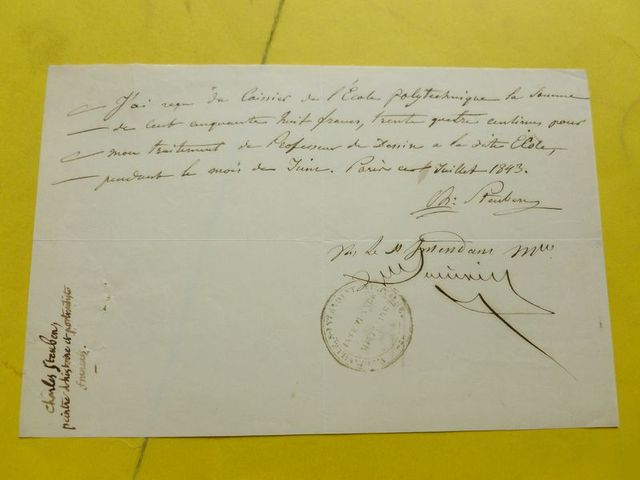 J'ai reçu du Caissier de l'École polytechnique la Somme
de cent cinquante huit francs, trente quatre centimes pour
mon traitement de Professeur de Dessin a la dite École,
pendant le mois de Juin. Paris Juillet 1843.
Ch: Steuben
Vu Le S Intendant Mre
Charles Steuben
peintre d'histoire et portraitiste
français.